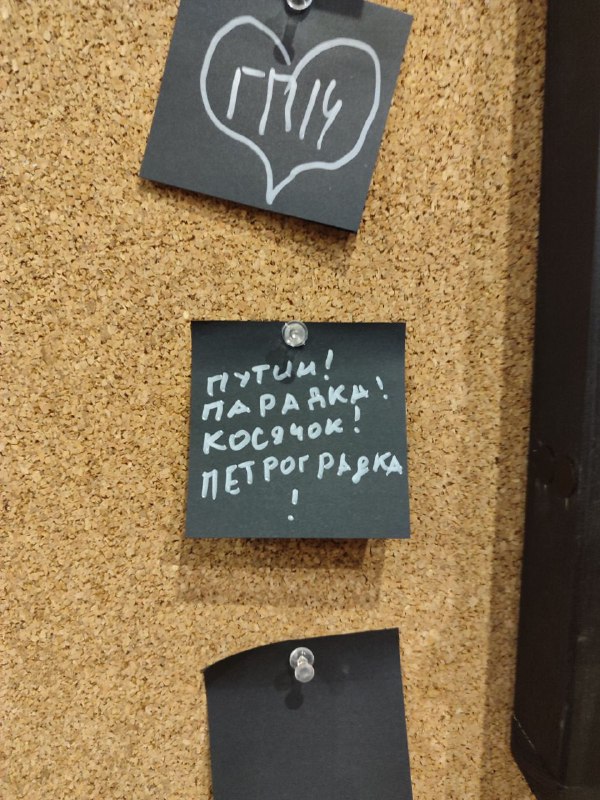 ГП14
ПУТИИ!
ПАРАДКА!
КОСЯЧОК!
ПЕТРОГРАДКА
!